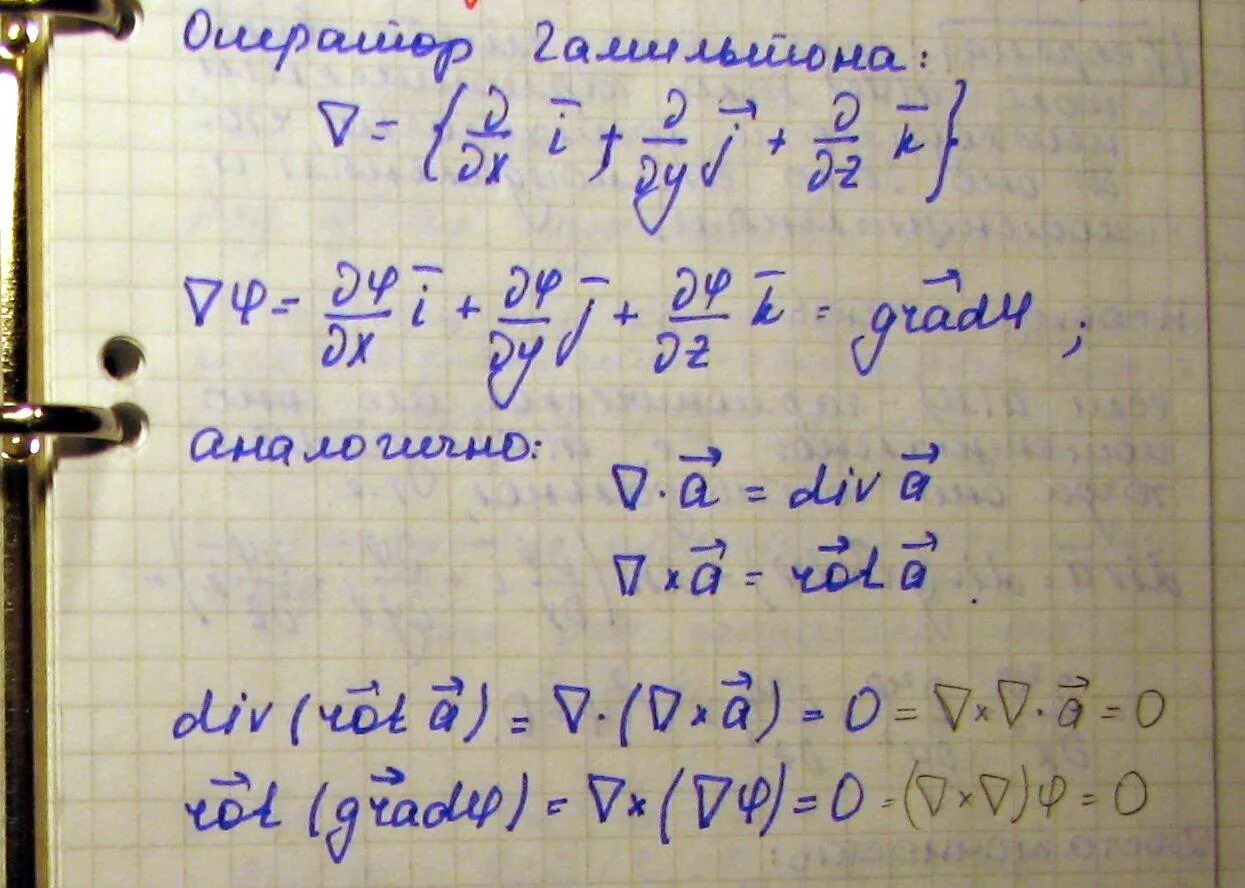 Оператор Гамильтона:
∇ = {∂/∂x i̅ + ∂/∂y j⃗ + ∂/∂z k̅}
∇φ = ∂φ/∂x i̅ + ∂φ/∂y j̅ + ∂φ/∂z k̅ = gra⃗dφ ;
аналогично:
∇·a⃗ = div a⃗
∇×a⃗ = ro⃗t a⃗
div (ro⃗t a⃗) = ∇·(∇×a⃗) = 0 = ∇×∇·a⃗ = 0
ro⃗t (gra⃗dφ) = ∇×(∇φ) = 0 = (∇×∇)φ = 0